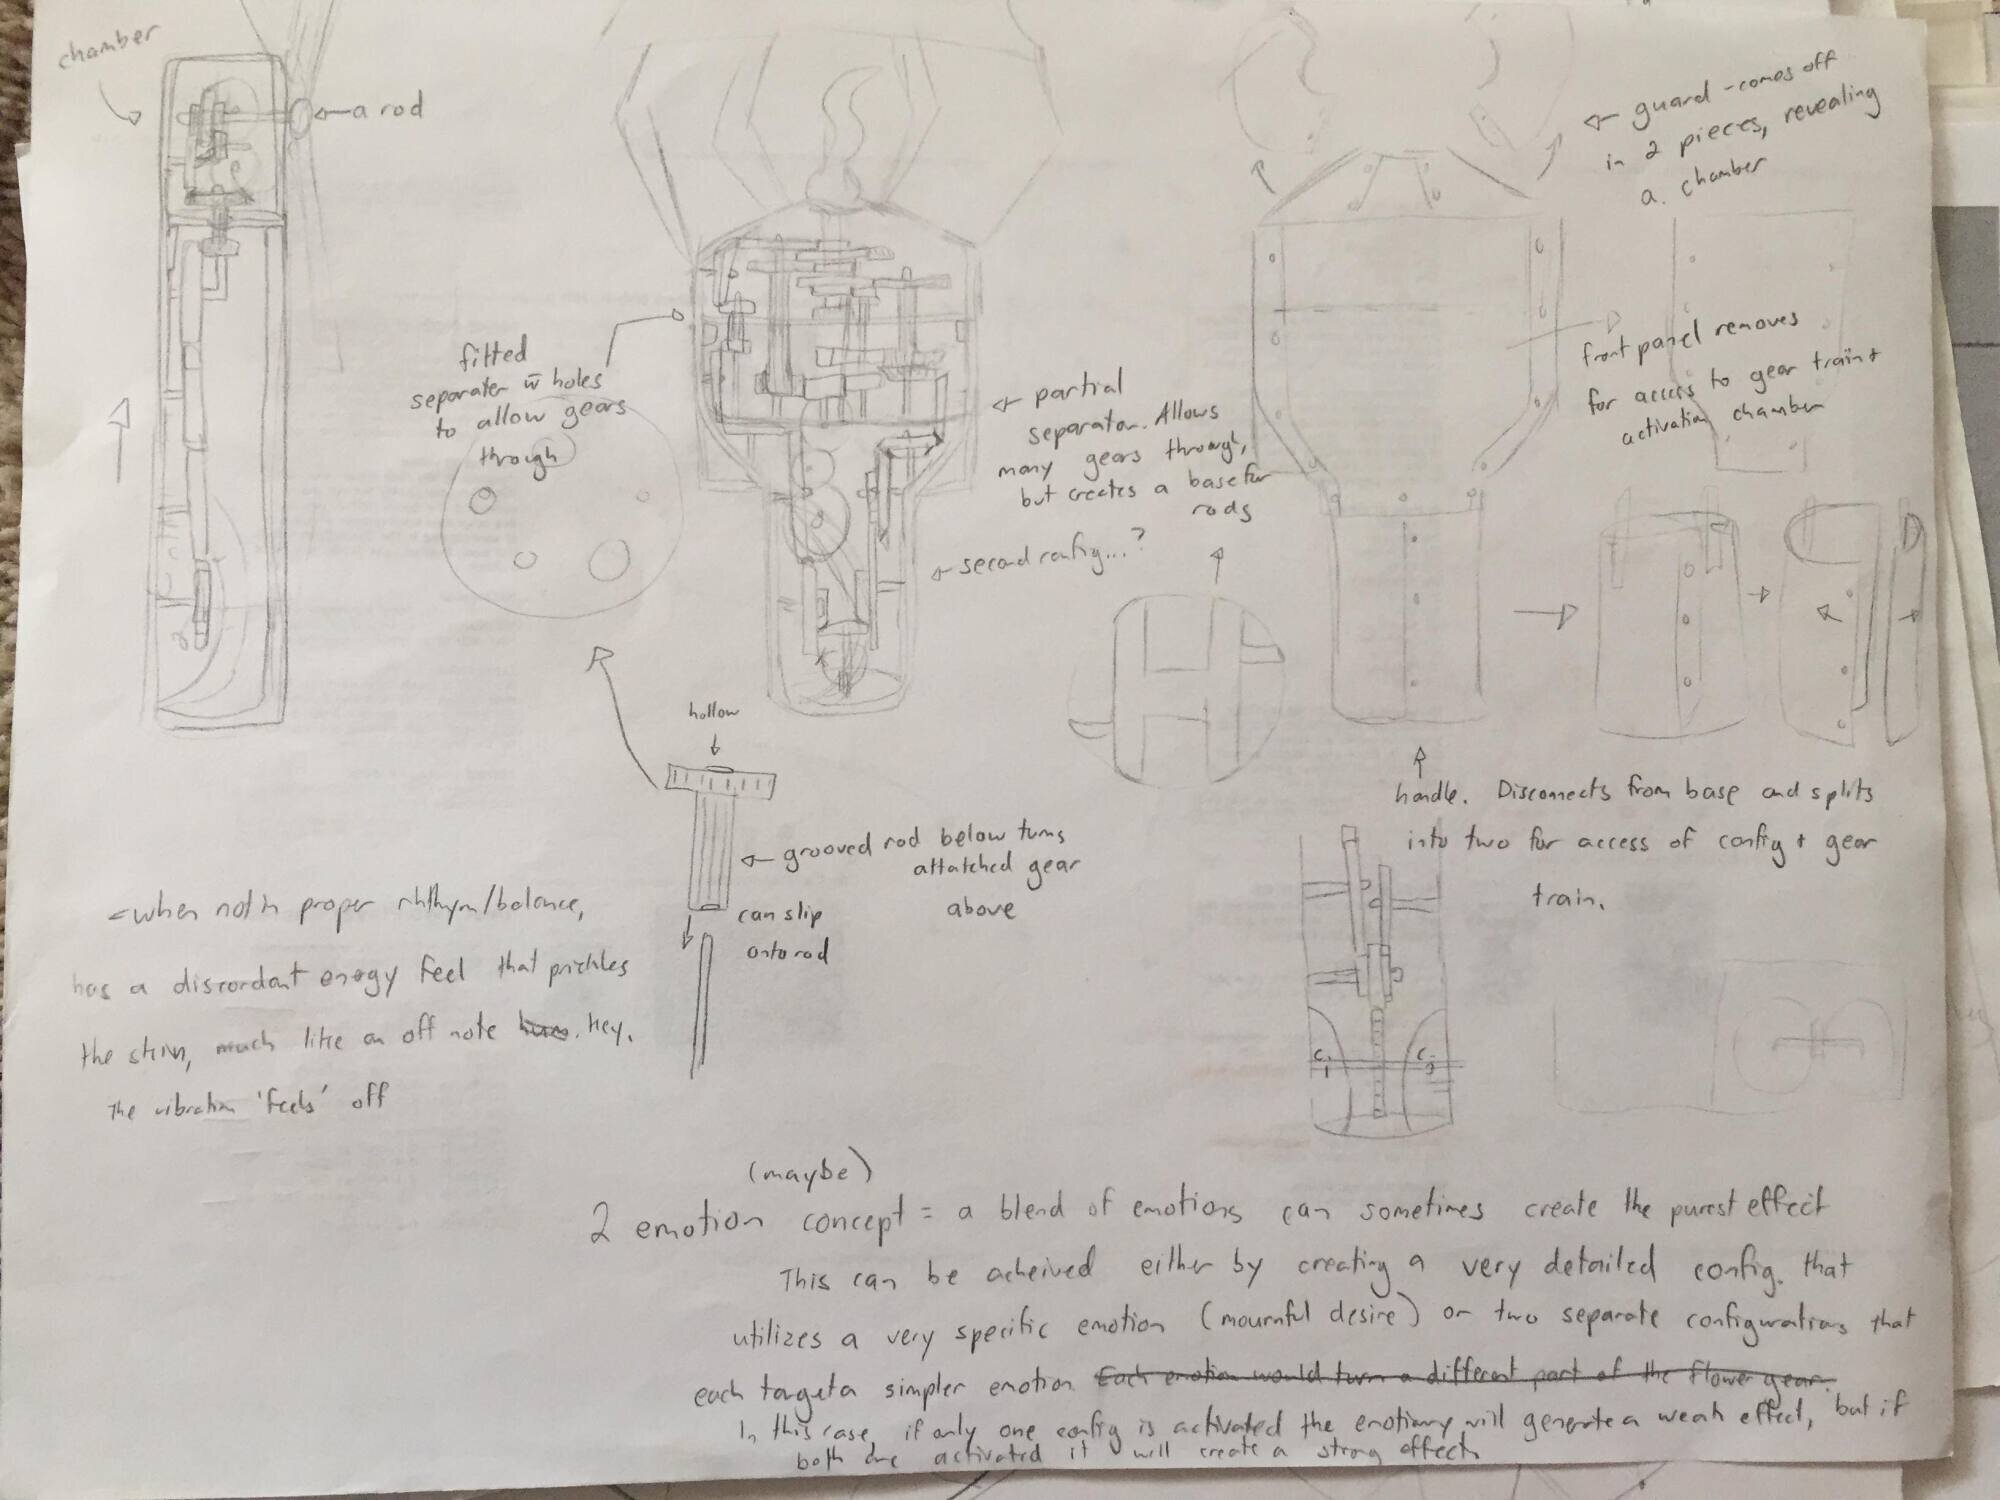 chamber
a rod
guard - comes off
in 2 pieces, revealing
a. chamber
fitted
separater w̄ holes
to allow gears
through
partial
separator. Allows
many gears through,
but creates a base for
rods
second config...?
front panel removes
for access to gear train +
activation chamber
hollow
grooved rod below turns
attatched gear
above
can slip
onto rod
handle. Disconnects from base and splits
into two for access of config + gear
train.
when not in proper rhthym/balance,
has a discordant energy feel that prickles
the skin, much like an off note hums. Hey.
The vibration 'feels' off
C-1
C-2
(maybe)
2 emotion concept = a blend of emotions can sometimes create the purest effect
This can be acheived either by creating a very detailed config. that
utilizes a very specific emotion (mournful desire) or two separate configurations that
each target a simpler emotion Each emotion would turn a different part of the flower gear.
In this case, if only one config is activated the emotionary will generate a weak effect, but if
both are activated it will create a strong effect